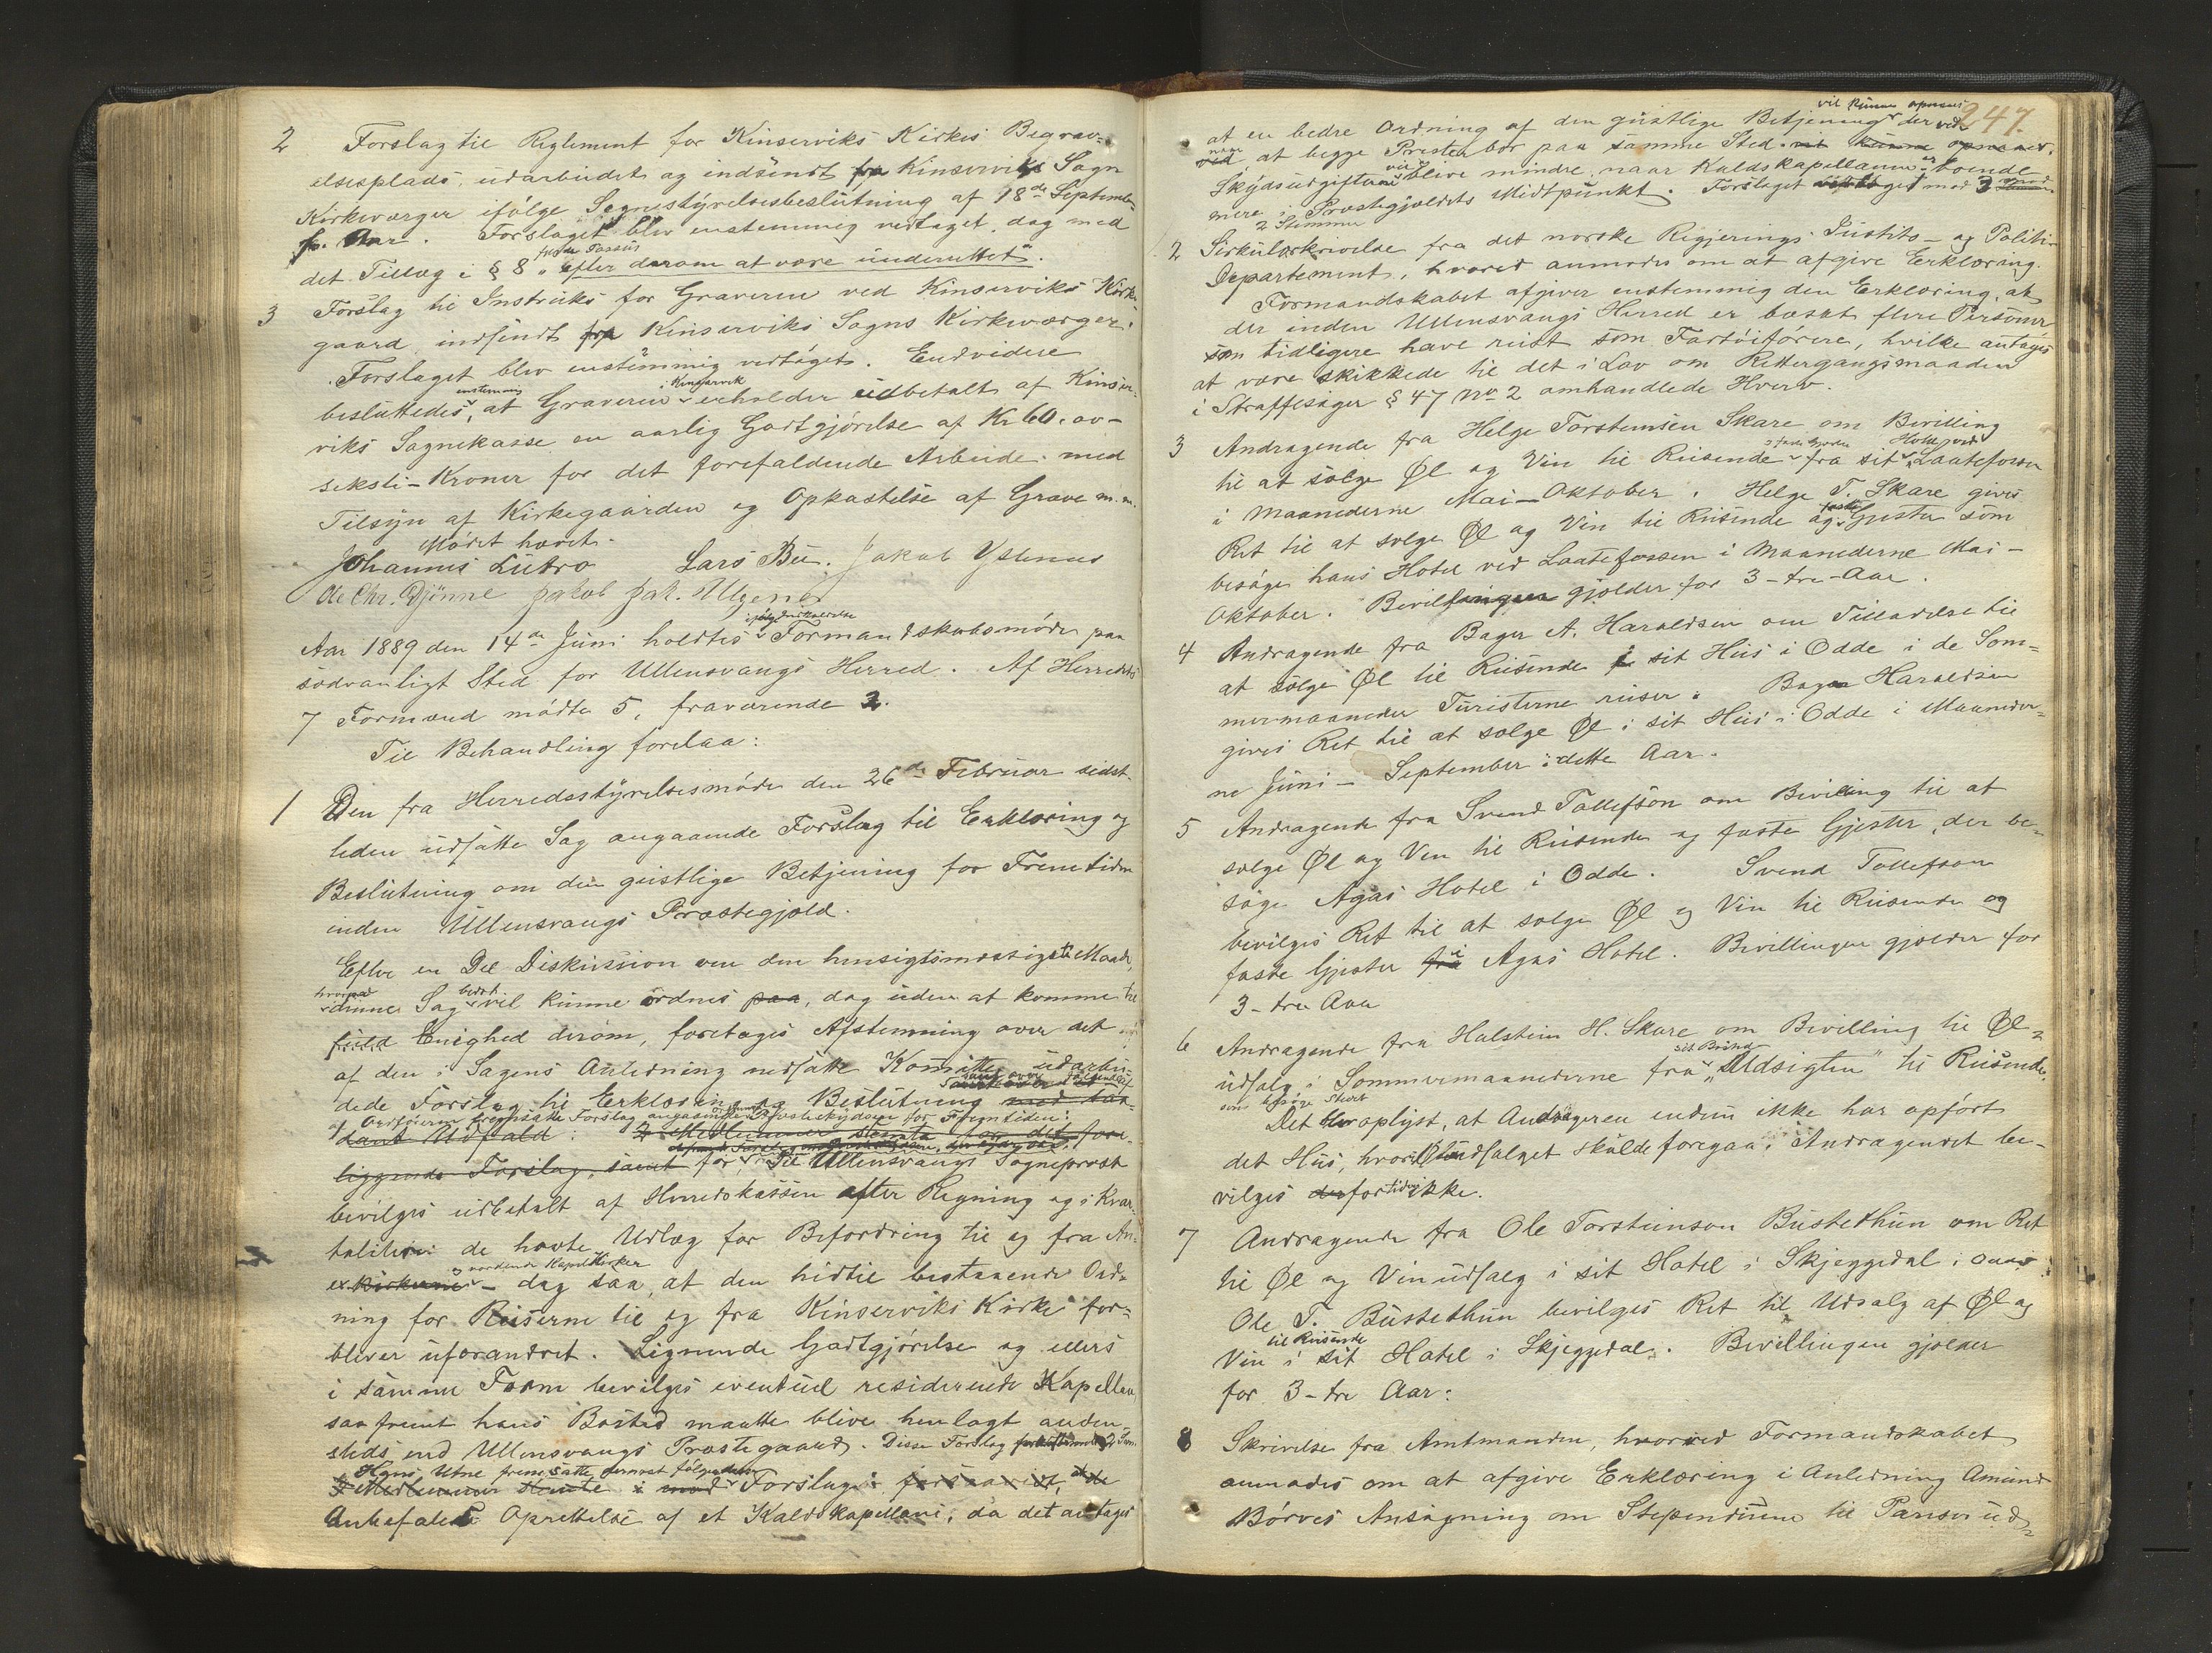 2 Forslag til Reglement for Kinserviks Kirkes Begrav-
elsesplads, udarbeidet og indsendt fra Kinserviks Sogns
Kirkeværger ifølge Sognestyrelsesbeslutning af 18de Septembr
f. Aar. Forslaget blev enstemmig vedtaget, dog med
det Tillæg i § 8 „efter derom at være underrettet“.
3 Forslag til Instruks for Graveren ved Kinserviks Kirke-
gaard indsendt fra Kinserviks Sogns Kirkeværger.
Forslaget blev enstemmig vedtaget. Endvidere
enstemmig i Kinservik
besluttedes, at Graveren erholder udbetalt af Kinser-
viks Sognekasse en aarlig Godtgjörelse af Kr 60. ov-
seksti-Kroner for det forefaldende Arbeide med
Tilsyn af Kirkegaarden og Opkastelse af Grave m.m.
Mödet hævet.
Johannes Lutro Lars Bu. Jakob Ystenes
Ole Chr. Djönne Jakob Jak. Alsgener
Aar 1889 den 14de Juni holdtes Formandskabsmöde paa
sædvanligt Sted for Ullensvangs Herred. Af Herredets
7 Formænd mödte 5, fraværende 2.
Til Behandling forelaa:
1 Den fra Herredsstyrelsesmöde den 26de Februar sidst-
leden udsatte Sag angaaende Forslag til Erklæring og
Beslutning om den geistlige Betjening for Fremtiden
inden Ullensvangs Præstegjæld.
Efter en Del Diskussion om den hensigtsmæssigste Maade,
hvorpaa bedst
denne Sag vil kunne ordnes paa, dog uden at komme til
fuld Enighed derom, foretages Afstemning over det
af den i Sagens Anledning nedsatte Komitte udarbei-
dede Forslag til Erklæring og Beslutning med saa-
af Ordföreren fremsatte Forslag angaaende Præsteskydsen for Fremtiden:
dant Udfald: 2 Medlemmer stemte for det fore-
liggende Forslag, samt for: Til Ullensvangs Sognepræst
bevilges udbetalt af Herredskassen efter Regning og i Kvar-
taliter de havte Udlæg for Befordring til og fra An-
vordende Kapelkirker
exkirkerne – dog saa, at den hidtil bestaaende Ord-
ning for Reiserne til og fra Kinserviks Kirke for-
bliver uforandret. Lignende Godtgjörelse og ellers
i samme Form bevilges eventuel residerende Kapellan,
saafremt hans Bosted maatte blive henlagt anden-
steds end Ullensvangs Præstegaard. Disse Forslag
Hans Utne fremsatte dernæst fölgende
3 Medlemmer stemte mod Forslag: at de
Anbefales Oprettelse af et Kaldskapellani, da det antages
247.
vil kunne opnaaes
at en bedre Ordning af den geistlige Betjening der ved
ved at begge Prester bor paa samme Sted vil kunne opnaaes.
Skydsudgifterne vil blive mindre, naar Kaldskapellanen er boende
mere i Præstegjældets Midtpunkt. Forslaget vedtaget mod 3
2 Stemmer
2 Sirkulærskrivelse fra det norske Regjerings Justits- og Politi-
Departement, hvorved anmodes om at afgive Erklæring.
Formandskabet afgiver enstemmig den Erklæring, at
der inden Ullensvangs Herred er bosat flere Personer
som tidligere have reist som Fartöiförere, hvilke antages
at være skikkede til det i Lov om Rettergangsmaaden
i Straffesager § 47 No 2 omhandlede Hverv.
3 Andragende fra Helge Torsteinsen Skare om Bevilling
Hotel ved
til at sælge Øl og Vin til Reisende fra sit Laatefossen
i Maanederne Mai – Oktober. Helge T. Skare gives
faste
Ret til at sælge Øl og Vin til Reisende og Gjester som
besøge hans Hotel ved Laatefossen i Maanederne Mai –
Oktober. Bevillingen gjælder for 3 – tre – Aar.
4 Andragende fra Bager A. Haraldsen om Tilladelse til
at sælge Øl til Reisende i sit Hus i Odde i de Som-
mermaaneder Turisterne reiser. Bager Haraldsen
gives Ret til at sælge Øl i sit Hus i Odde i Maaneder-
ne Juni – September i dette Aar.
5 Andragende fra Svend Tollefson om Bevilling til at
sælge Øl og Vin til Reisende og faste Gjester, der be-
söge Agas Hotel i Odde. Svend Tollefson
bevilges Ret til at sælge Øl og Vin til Reisende og
faste Gjester fra i Agas Hotel. Bevillingen gjælder for
3 – tre Aar
6 Andragende fra Halstein H. Skare om Bevilling til Øl-
udsalg i Sommermaanederne fra „Udsigten“ til Reisende,
som besöge Stedet
Det blev oplyst, at Andrageren endnu ikke har opfört
det Hus, hvori Øludsalget skulde foregaa. Andragendet be-
vilges derfor ikke.
7 Andragende fra Ole Torsteinson Bustethun om Ret
til Øl og Vinudsalg i sit Hotel i Skjeggedal i
Ole T. Bustethun bevilges Ret til Udsalg af Øl og
til Reisende
Vin i sit Hotel i Skjeggedal. Bevillingen gjælder
for 3 – tre Aar:
8 Skrivelse fra Amtmanden, hvorved Formandskabet
anmodes om at afgive Erklæring i Anledning Amund
Börves Ansögning om Stipendium til Pansrud-